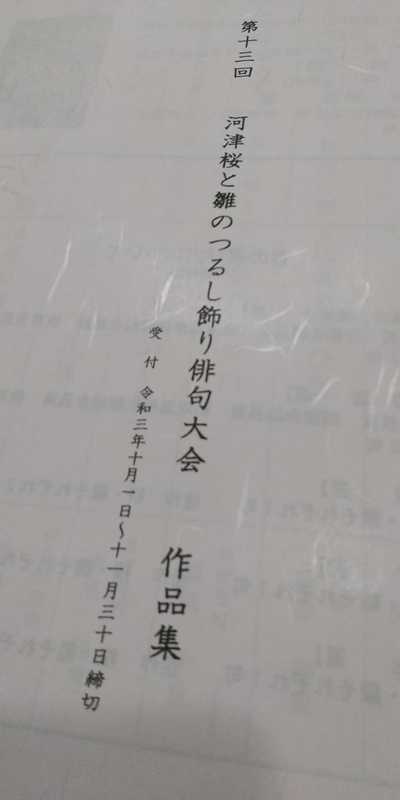 第十三回　河津桜と雛のつるし飾り俳句大会　作品集
受付　令和三年十月一日～十一月三十日締切